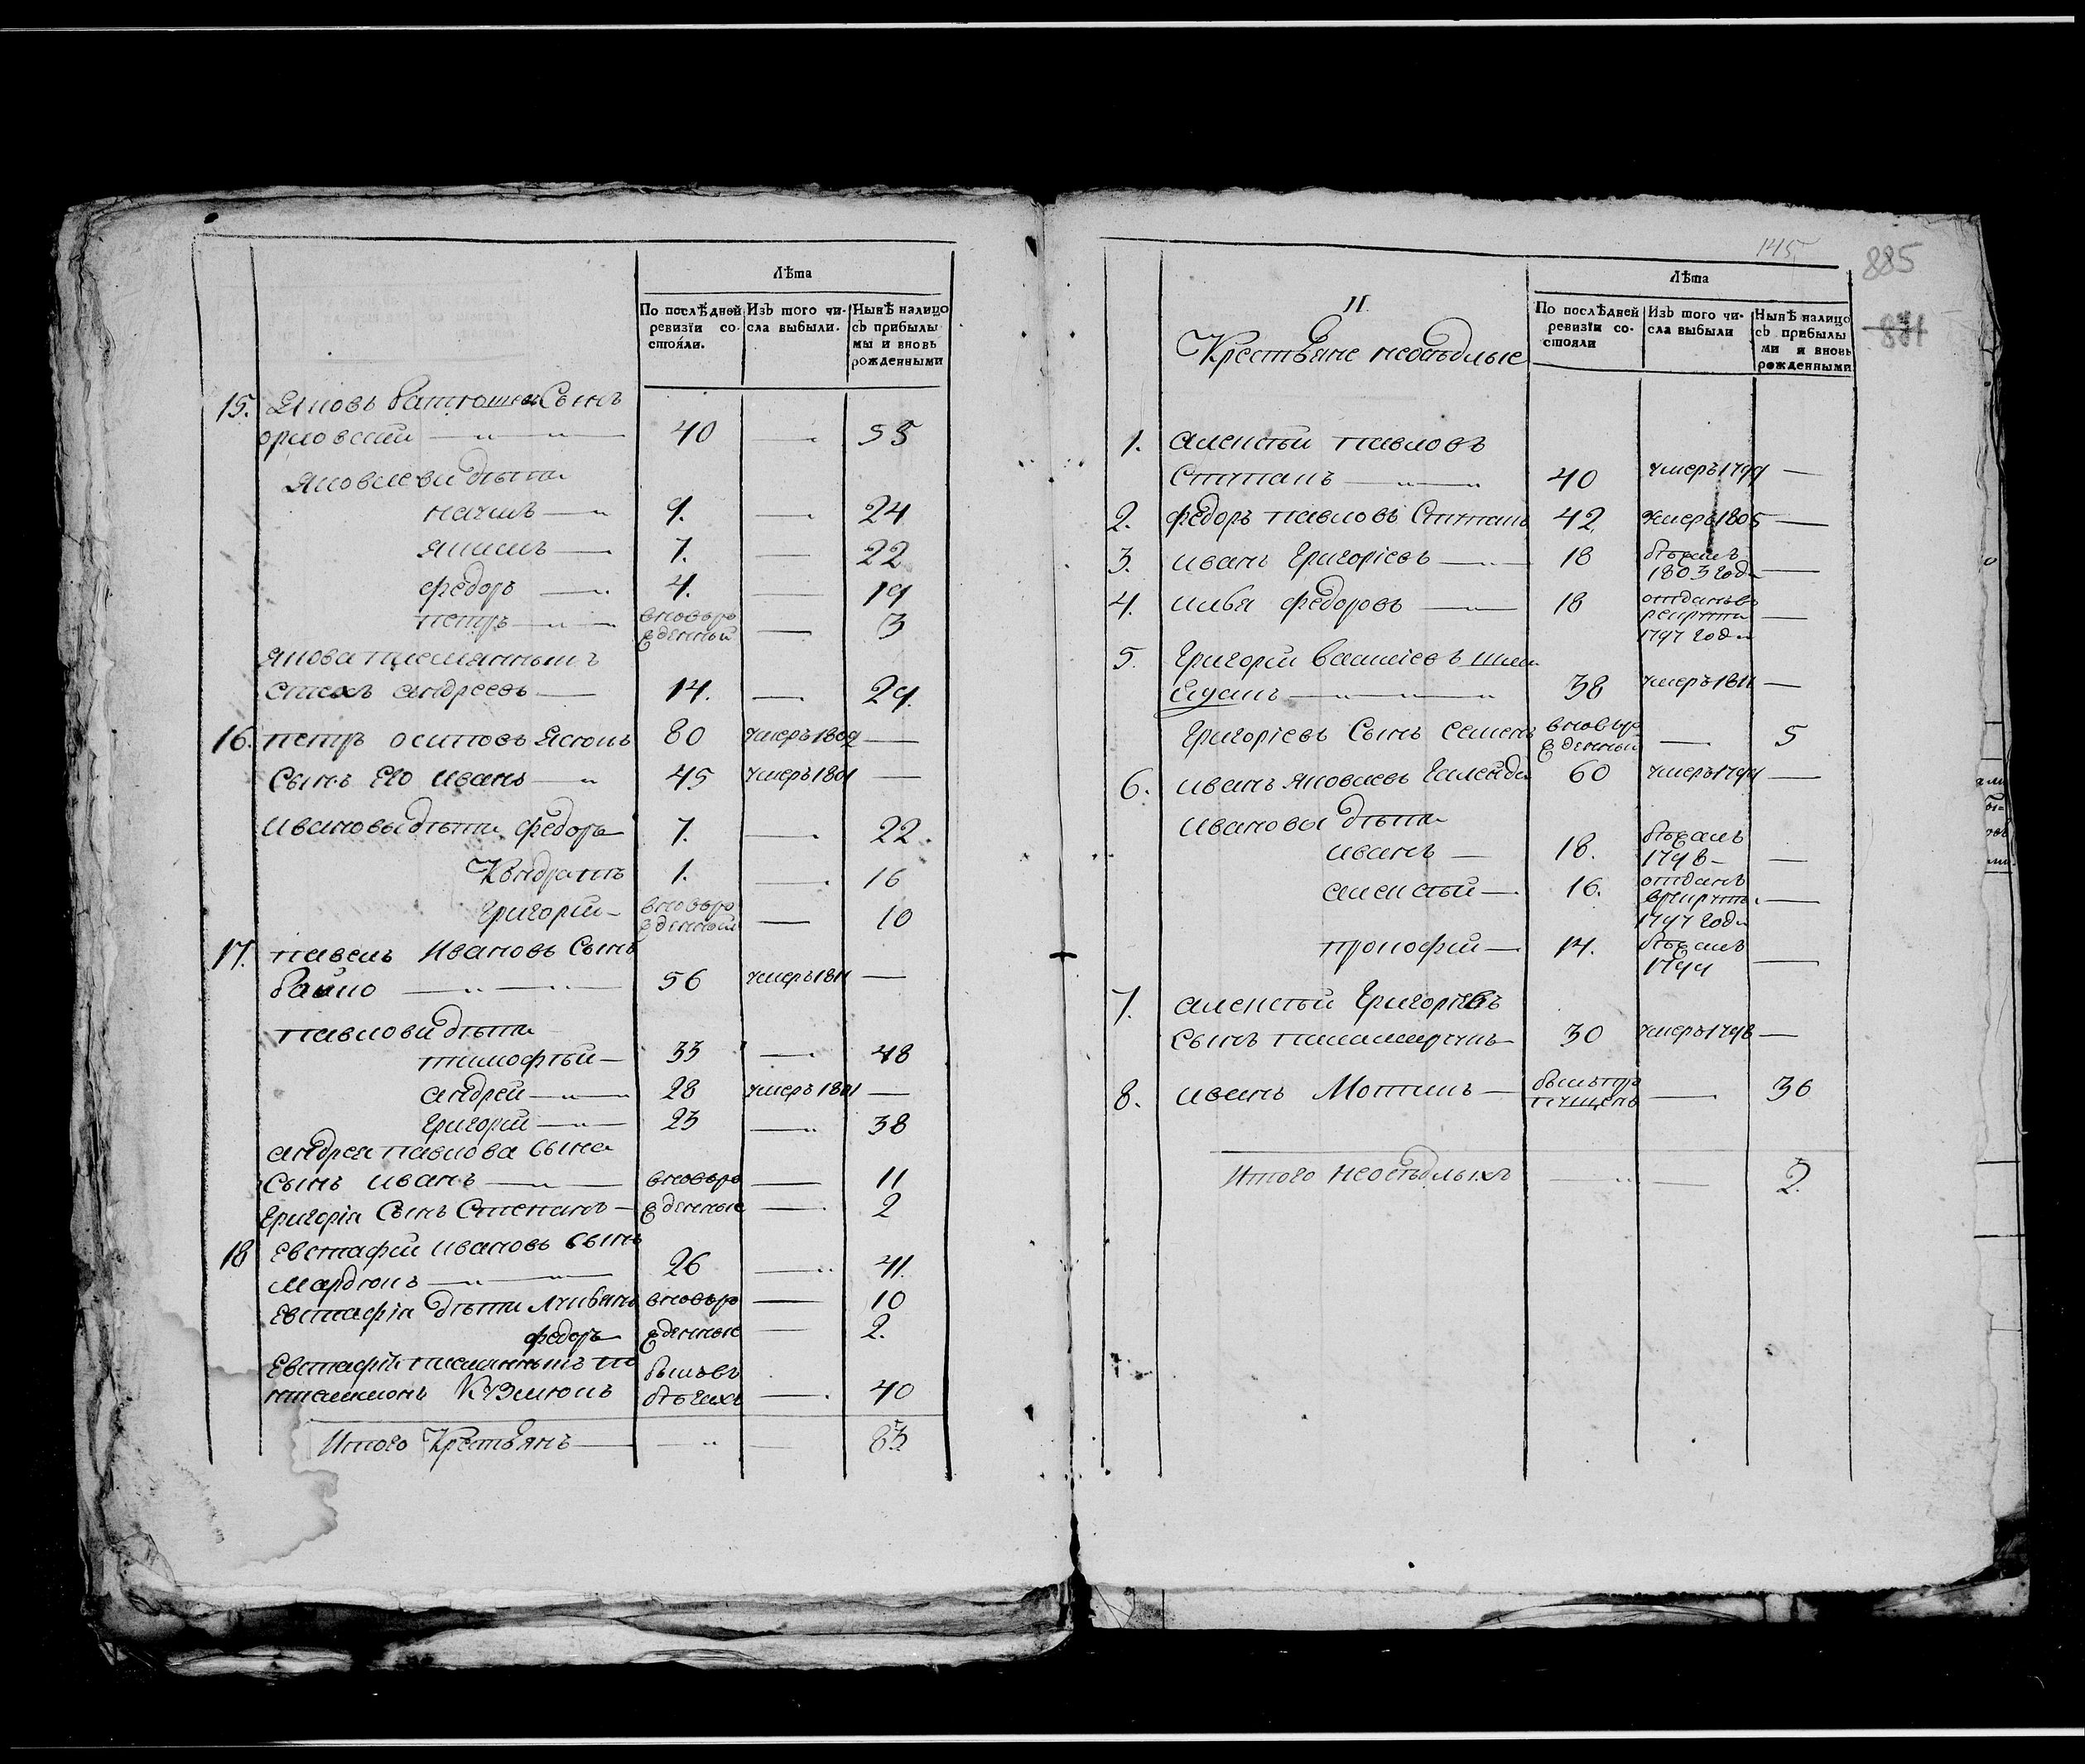 Лѣта
По послѣдней ревизїи со-стояли.
Изъ того чи-сла выбыли.
Нынѣ налицо съ прибылы мы и вновь рожденными
15. Яковъ Сынъ
орловскій 40 — 55
Яковлеви дѣти
9. — 24
Якимъ — 7. — 22
федоръ — 4. — 19
петръ — вновьро жденный — 3
Якова племянникъ
андреевъ — 14. — 29.
16. петръ осиповъ 80 умеръ 1809 —
Сынъ Его иванъ — 45 умеръ 1801 —
ивановы дѣти федоръ 7. — 22.
Кондратъ 1. — 16
Григорій — вновьро жденный — 10
17. павелъ Ивановъ Сынъ
56 умеръ 1811 —
павлови дѣти
тимофѣй — 33 — 48
андрей — 28 умеръ 1801 —
Григорій — 23 — 38
андрея павлова сына
Сынъ иванъ — вновьро — 11
Григорія Сынъ Степанъ — жденные — 2
18 Евстафій ивановъ сынъ
26 — 41.
Евстафія дѣти вновьро — 10
федоръ жденные — 2.
Евстафія племянникъ па былъ въ
бѣгахъ — 40
Итого Крестьянъ — — 83
145
885
871
II.
Крестьяне неосѣдлые
Лѣта
По послѣдней ревизїи со-стояли
Изъ того чи-сла выбыли
Нынѣ налицо съ прибылы ми и вновь рожденными
1. алексѣй павловъ
40 умеръ 1799 —
2. федоръ павловъ 42. умеръ 1805 —
3. иванъ Григоріевъ — 18 бѣжалъ 1803 года —
4. илья федоровъ — 18 отданъ въ рекруты 1797 года —
5. Григорій
38 умеръ 1811 —
Григоріевъ Сынъ Семенъ вновьро жденный — 5
6. иванъ Яковлевъ 60 умеръ 1799 —
Иванова дѣти
иванъ — 18. бѣжалъ 1798 — —
алексѣй — 16. отданъ в рекруты 1797 года —
прокофій — 14. бѣжалъ 1799 —
7. алексѣй Григоріевъ
сынъ 30 умеръ 1798 —
8. иванъ Мотинъ — былъ про пущенъ — 36
Итого неосѣдлыхъ — — 2.